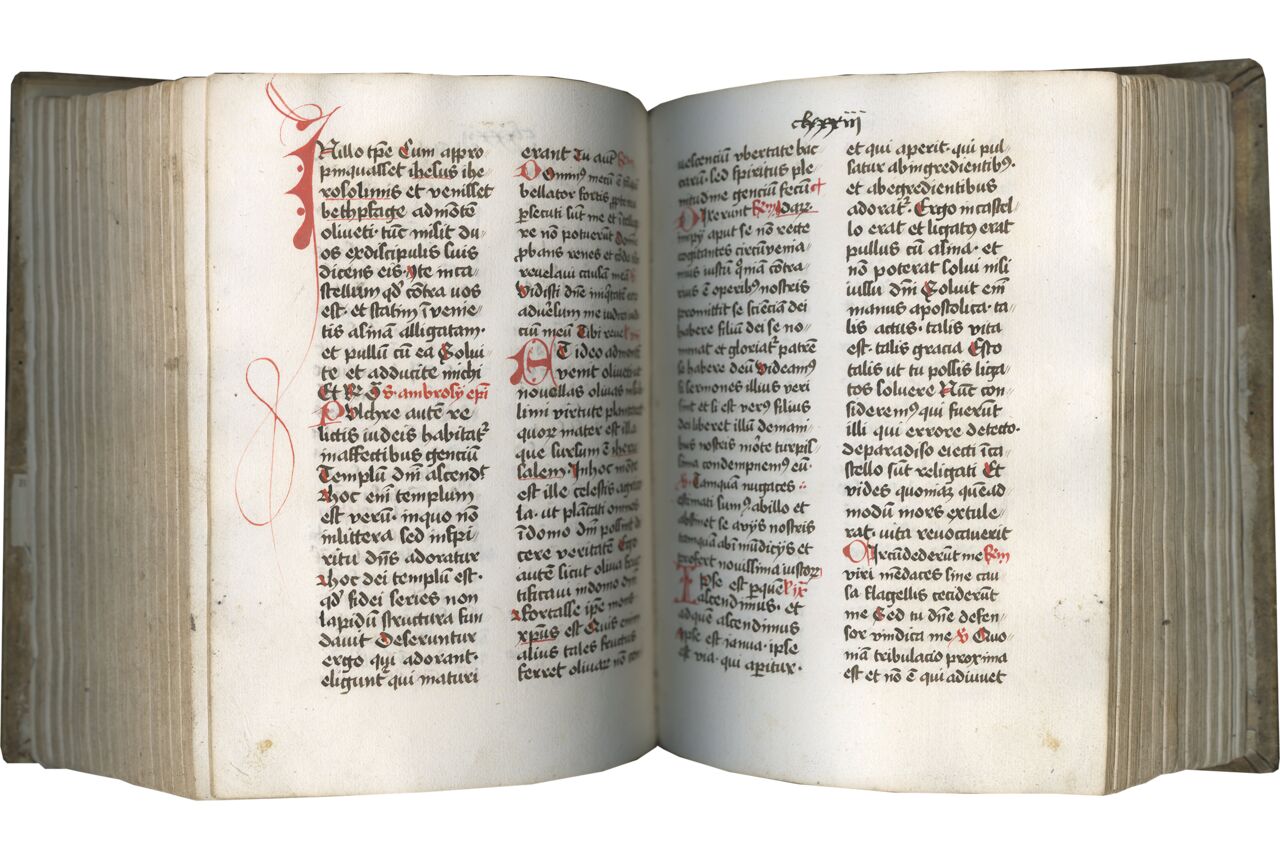 INillo tpe Cum appro
pinquasset ihesus ihe
rosolimis et venisset
bethphage ad mōtē
oliveti· tūc misit du-
os ex discipulis suis
dicens eis· Ite in ca-
stellum qd' cōtra uos
est· et statim īvenie-
tis asinā alligatam·
et pullū cū ea Solui-
te et adducite michi
Et R· O s· ambrosÿ epi
Pulchre autē re
lictis iudeis habitat'
in affectibus genciū
Templū dnī ascend'
hoc eni templum
est verū· in quo nō
in littera sed in spi-
ritu dns adoratur
hoc dei templū est·
qd' fidei series non
lapidū structura fun
davit Deseruntur
ergo qui adorant·
eligunt qui maturi
erant Tu autē
Dominus mecū ē
bellator fortis
persecuti sūt me et
re nō potuerūt
probans renes et
revelavi causā meā
Vidisti dne
aduersum me
cium meū Tibi
AT ideo ad montē
venit oliveti ut
novellas olivas
limi virtute
quorum mater est illa
que sursum ē iheru
salem· In hoc mōte
est ille celestis
la· ut plātati omnes
ī domo dnī
cere veritatē Ego
autē sicut oliva
tificavi in domo dnī
Fortasse ipse mons
xpus est Quis enim
alius tales fructus
ferret olivarum nō
clxxxiii
uescenciū vbertate bac
carū· sed spiritus ple-
nitudine genciū fecūd
Dixerunt
impÿ aput se nō recte
cogitantes circūvenia-
mus iustū qniā contra-
rius ē operibus nostris
promittit se scienciā dei
habere filiū dei se no-
minat et gloriat' patrē
se habere deū Videamus
si sermones illius veri
sint et si est verus filius
dei liberet illū de mani-
bus nostris mōte turpis-
sima condempnemus eū·
v· Tamquā nugaces
estimati sumus ab illo et
abstinet se a vÿs nostris
tamquā ab inmūdicÿs et
prefert novissima iustorum
Ipse est per quē Rix
ascendimus· et
ad quē ascendimus
ipse est ianua· ipse
est via· qui aperitur·
et qui aperit· qui pul-
satur ab ingredientibus·
et ab egredientibus
adorat'· Ergo in castel-
lo erat et ligatus erat
pullus cū asina· et
nō poterat solui nisi
iussu dnī Soluit enī
manus apostolica· ta-
lis actus· talis vita
est· talis gracia Esto
talis ut tu possis liga-
tos soluere Nūc con-
sideremus qui fuerūt
illi qui errore detecto·
de paradiso eiecti ī ca-
stello sūt religati Et
vides quoniam quēad-
modū mors extule-
rat· vita revocaverit
Circūdederūt me
viri mēdaces sine cau-
sa flagellis ceciderūt
me Sed tu dne defen-
sor vindica me v Quo-
niā tribulacio proxima
est et nō ē qui adiuuet